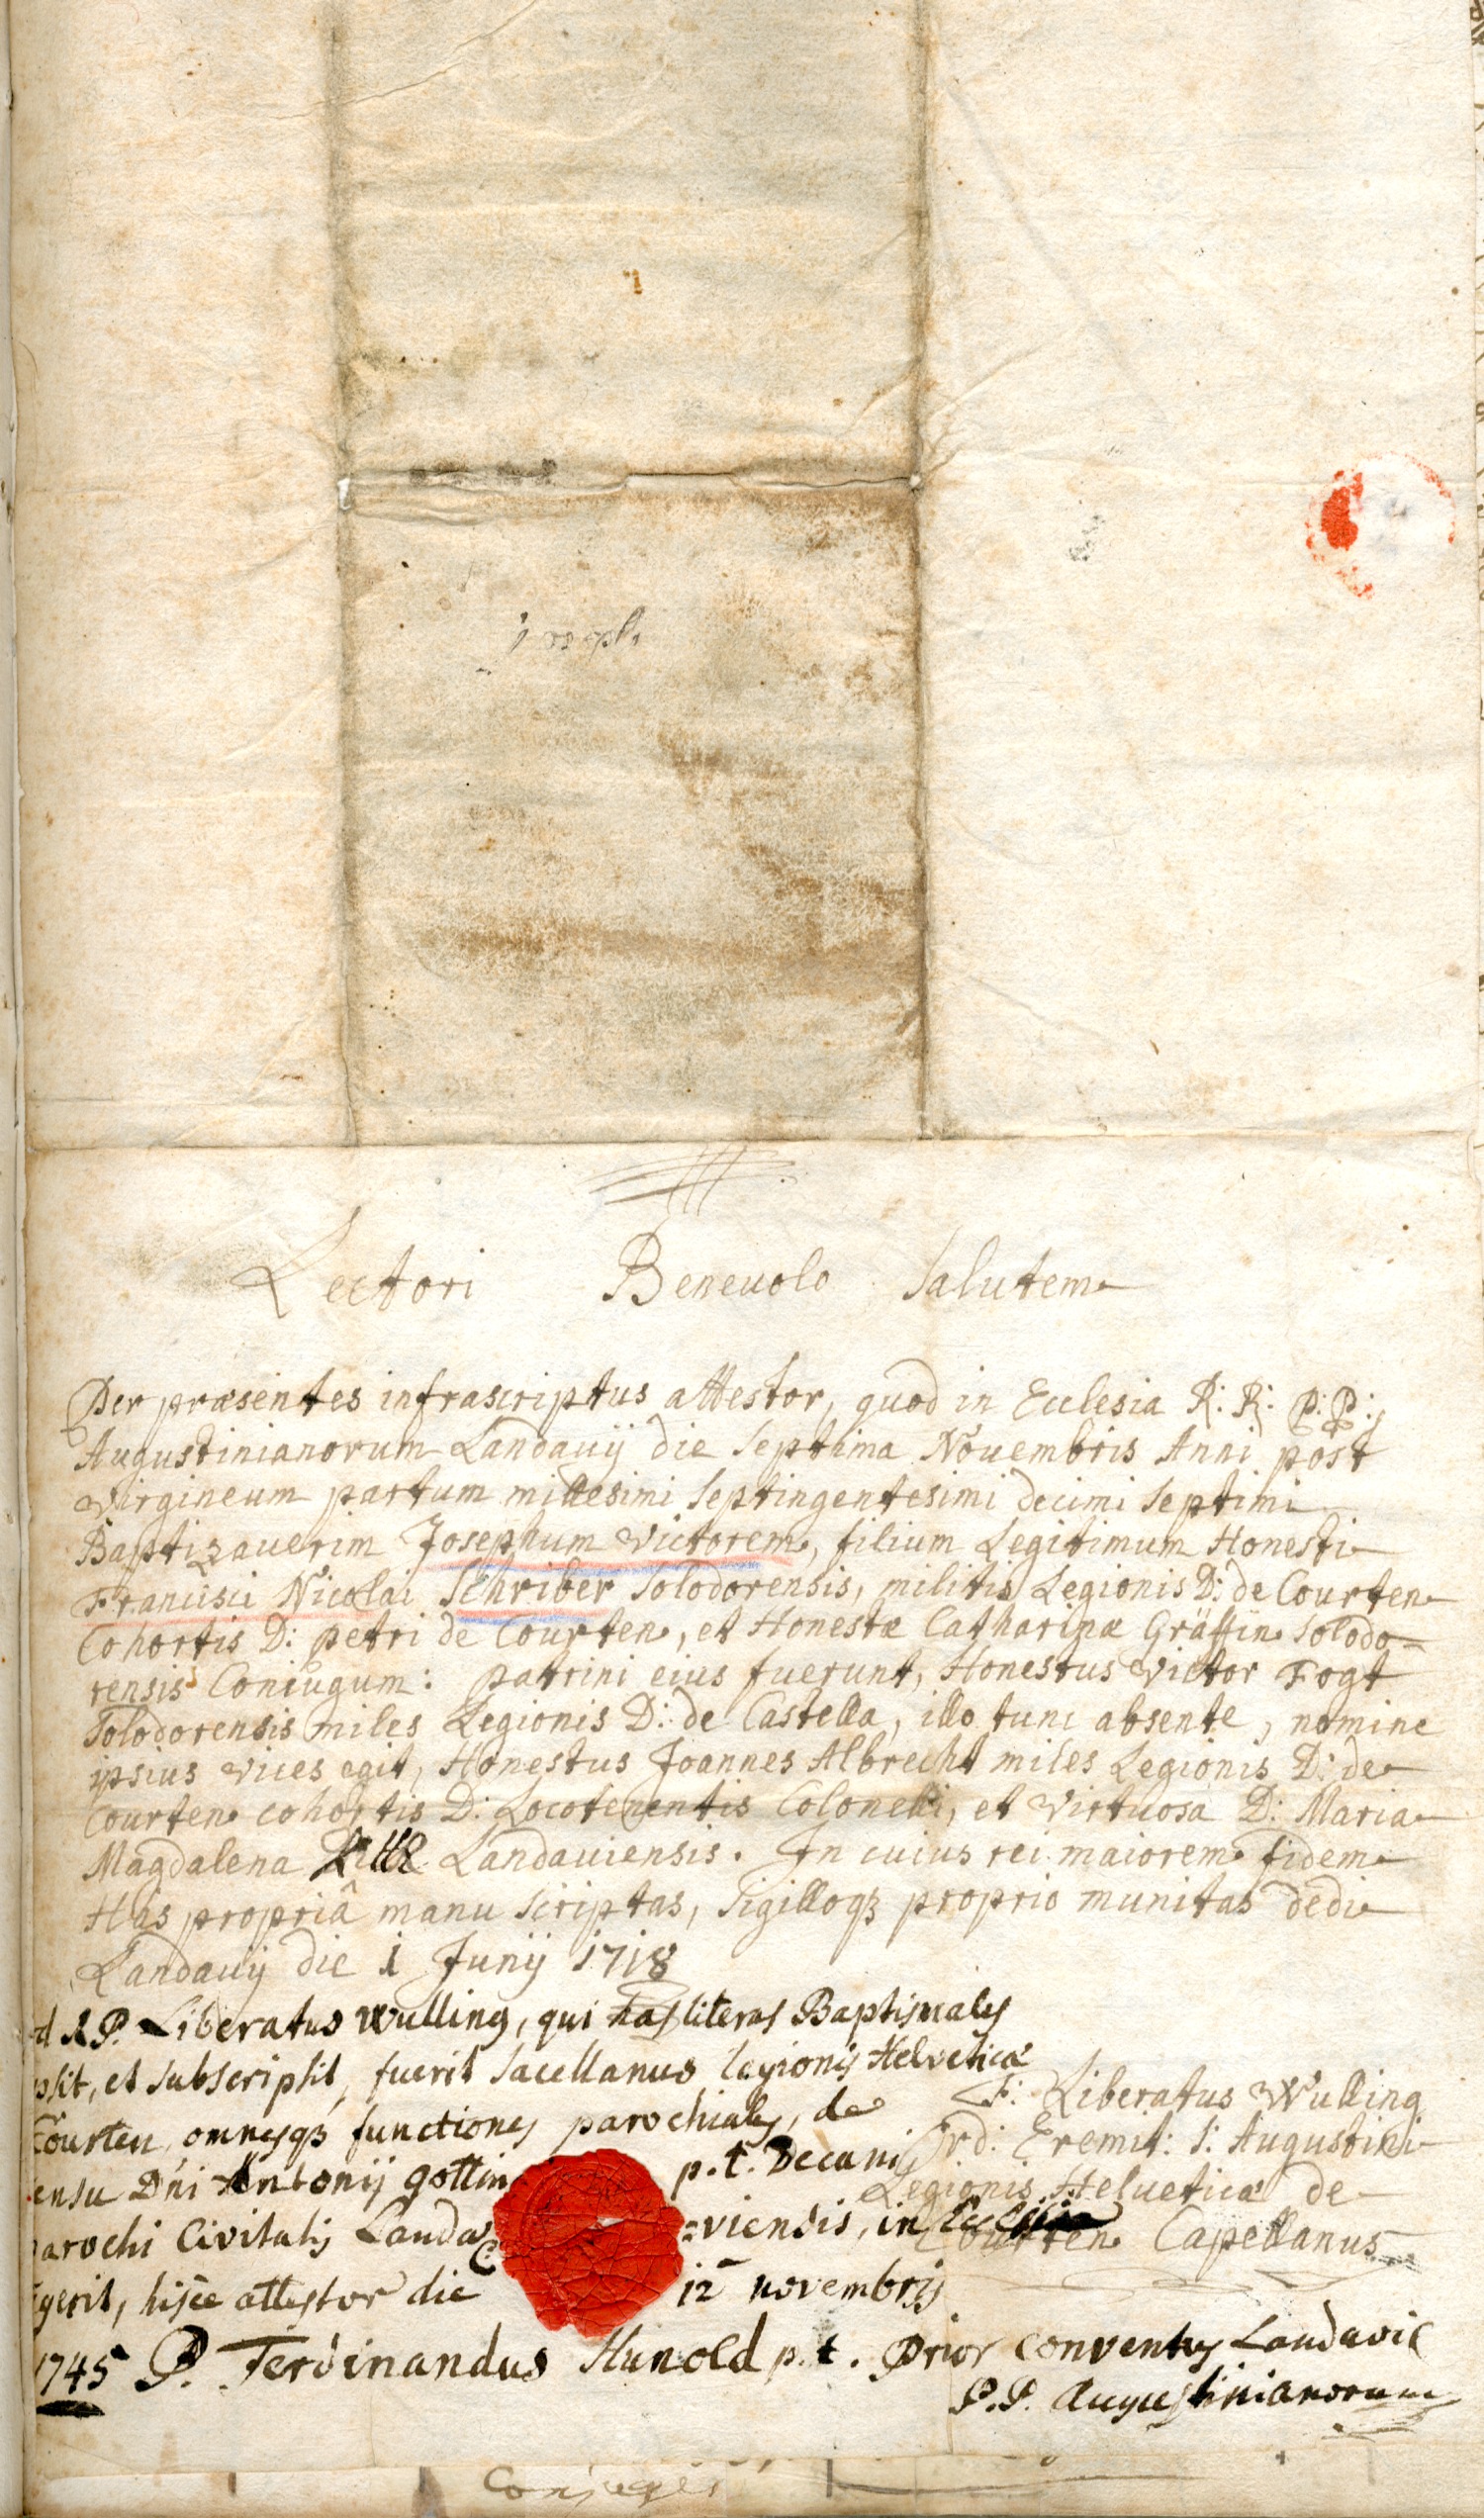 Lectori Beneuolo Salutem
Per præsentes infrascriptus attestor, quod in Ecclesia R: R: P: P:
Augustinianorum Landauij die Septima Nouembris Anni post
virgineum partum millesimi Septingentesimi decimi Septimi
Baptizauerim Josephum Victorem, filium Legitimum Honesti
Francisci Nicolai Schriber Solodorensis, militis Legionis D: de Courten
Cohortis D: petri de Courten, et Honestæ Catharinæ Gräffin Solodo=
rensis Coniugum: patrini eius fuerunt, Honestus Victor Fogt
Solodorensis miles Legionis D: de Castella, illo tunc absente, nomine
ipsius vices egit, Honestus Joannes Albrecht miles Legionis D: de
Courten cohortis D: Locotenentis Colonelli, et Virtuosa D: Maria
Magdalena Landauiensis. In cuius rei maiorem fidem
Has propriâ manu scriptas, Sigilloqz proprio munitas dedi
Landauij die 1 Junij 1718
F: Liberatus Wulling
Ord: Eremit: S: Augustini
Legionis Helueticæ de
Courten Capellanus
d R P. Liberatus Wulling, qui has literas Baptismales
psit, et subscripsit, fuerit Sacellanus legionis Helveticæ
Courten, omnesqz functiones parochiales, de
ensu Dni Antonij gottin p. t. Decani,
arochi Civitatis Landa =viensis, in
gerit, hisce attestor die 12 novembris
1745 P. Ferdinandus Hunold p. t. Prior Conventus Landavie
P. P. Augustinianorum
Conjuges